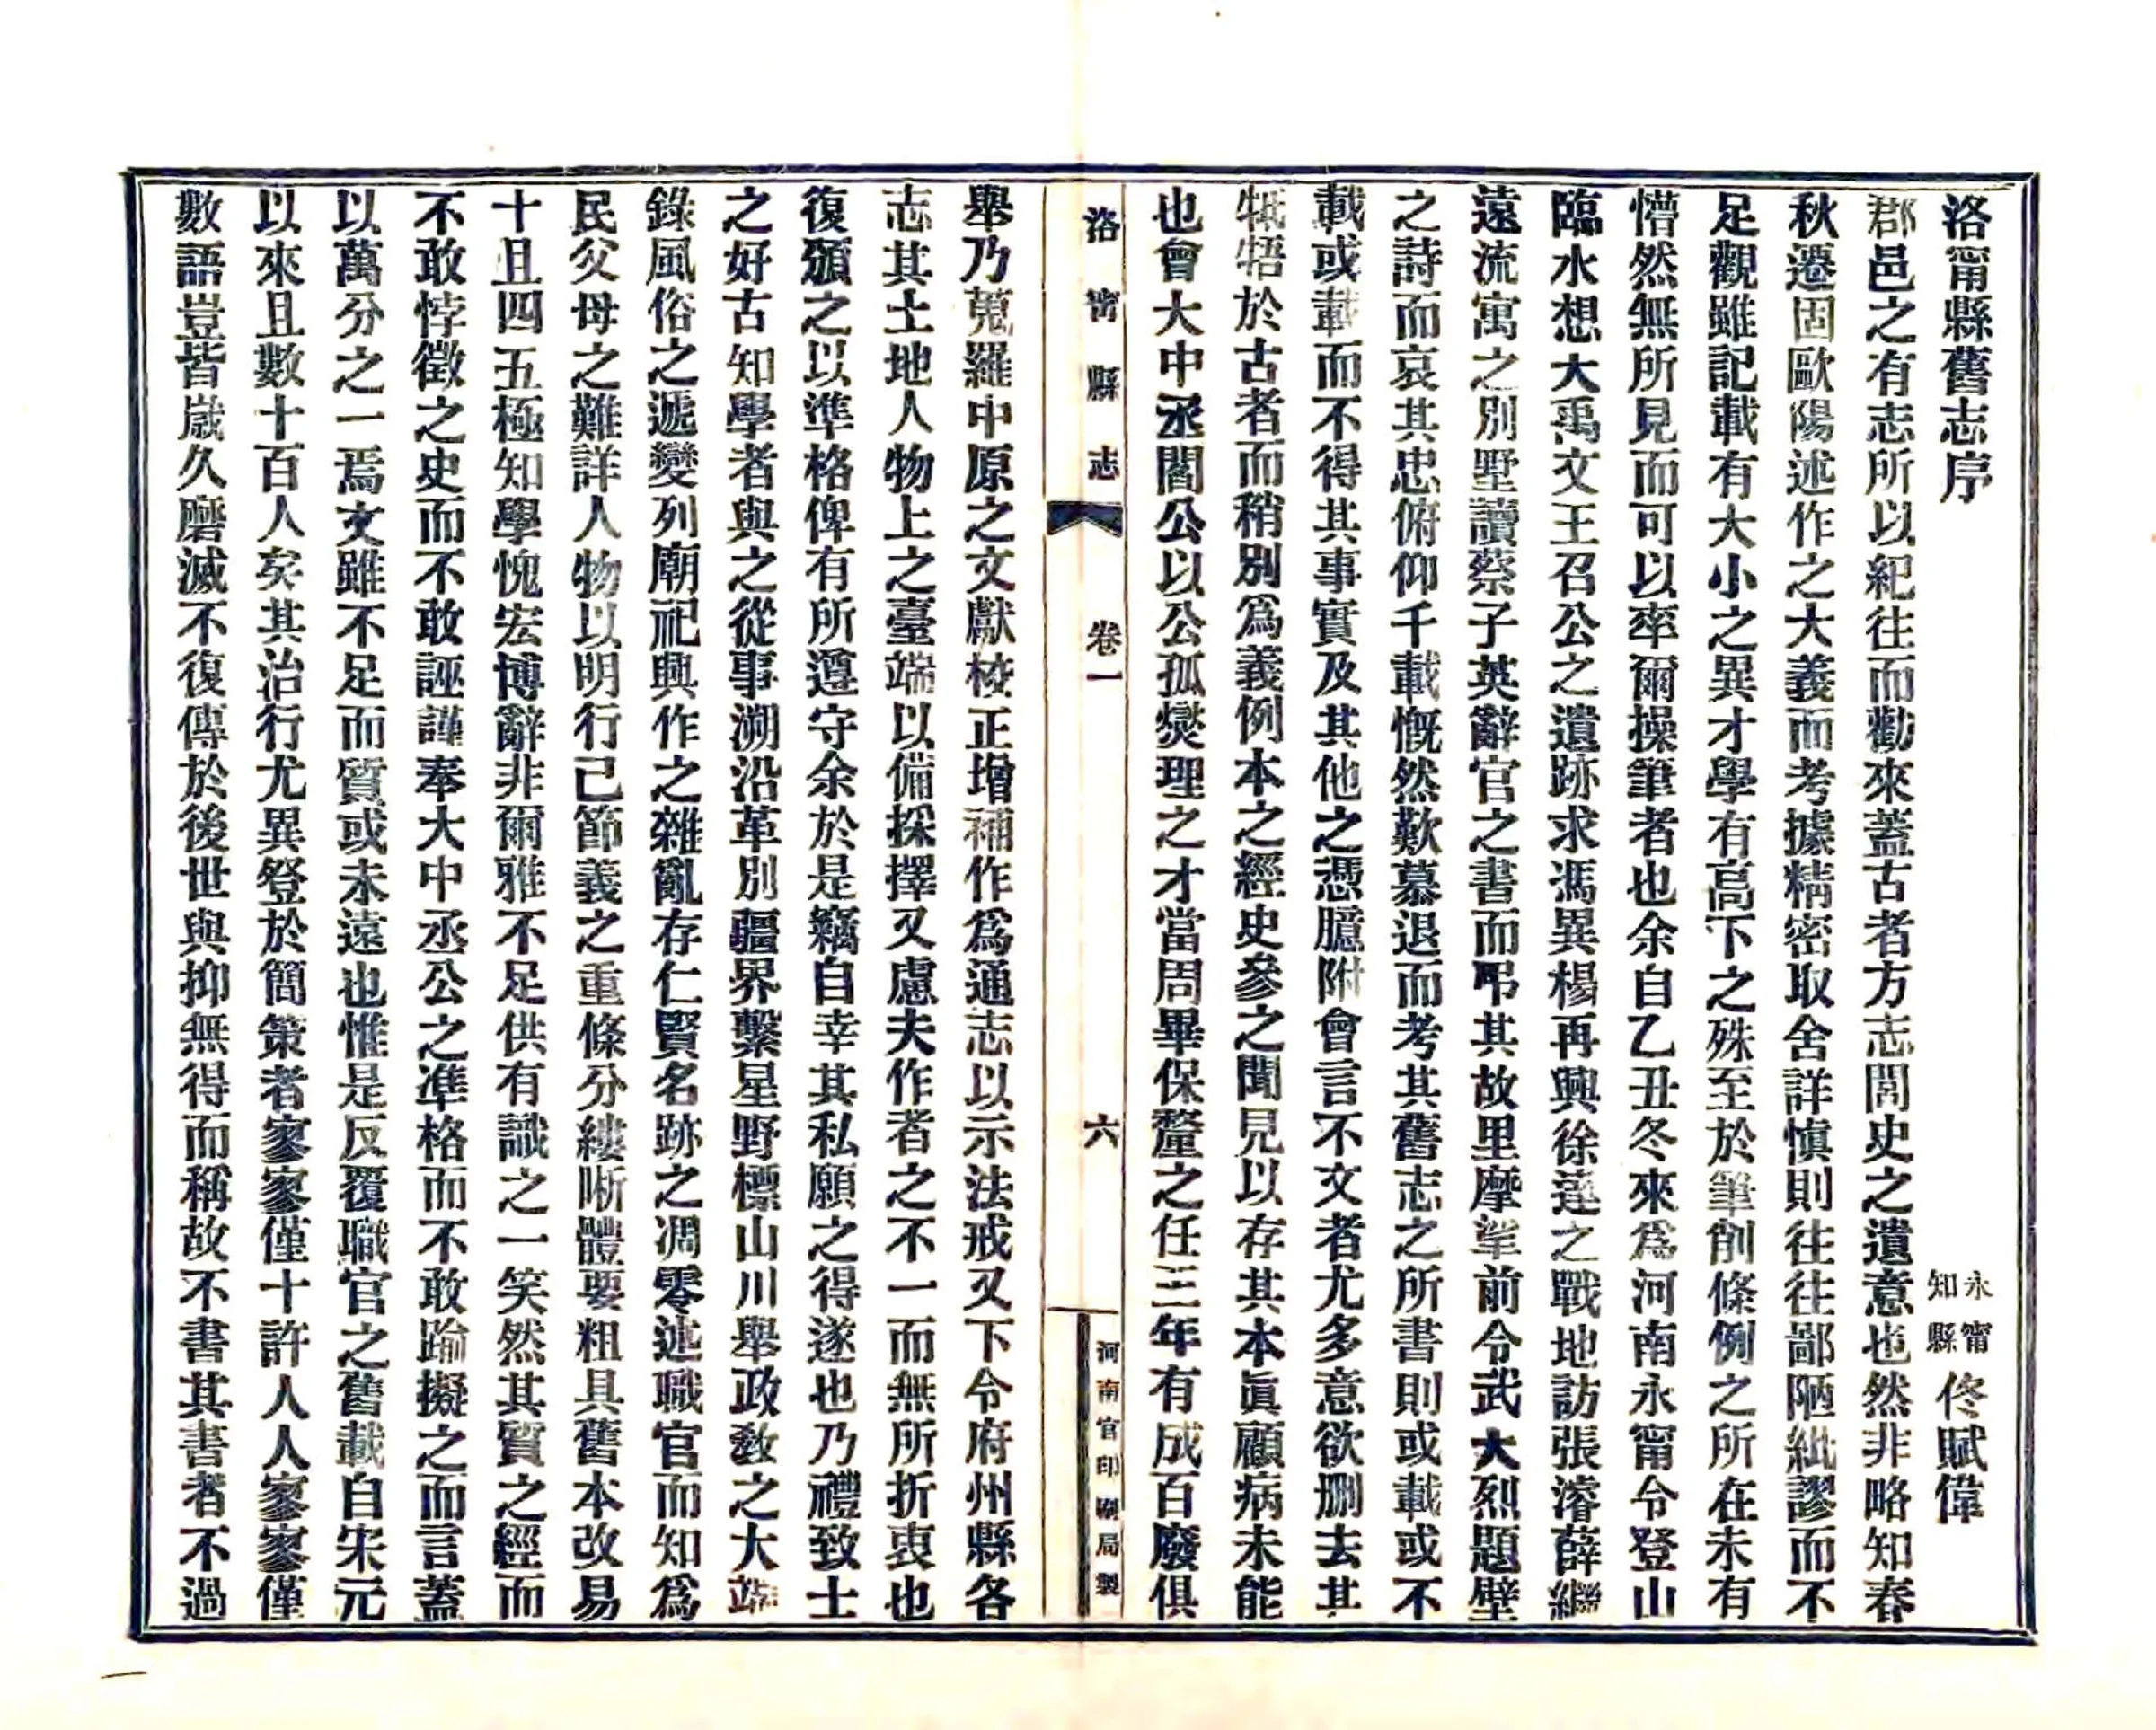 洛甯縣舊志序
永甯知縣佟賦偉
郡邑之有志所以紀往而勸來蓋古者方志閭史之遺意也然非略知春
秋遷固歐陽述作之大義而考據精密取舍詳慎則往往鄙陋紕謬而不
足觀雖記載有大小之異才學有高下之殊至於筆削條例之所在未有
懵然無所見而可以率爾操筆者也余自乙丑冬來爲河南永甯令登山
臨水想大禹文王召公之遺跡求馮異楊再興徐達之戰地訪張濬薛繼
遠流寓之別墅讀蔡子英辭官之書而弔其故里摩挲前令武大烈題壁
之詩而哀其忠俯仰千載慨然歎慕退而考其舊志之所書則或載或不
載或載而不得其事實及其他之憑臆附會言不文者尤多意欲删去其
牴牾於古者而稍別爲義例本之經史參之聞見以存其本眞顧病未能
也會大中丞閻公以公孤燮理之才當周畢保釐之任三年有成百廢俱
洛甯縣志
卷一
六
河南官印刷局製
舉乃蒐羅中原之文獻校正增補作爲通志以示法戒又下令府州縣各
志其土地人物上之臺端以備採擇又慮夫作者之不一而無所折衷也
復頒之以準格俾有所遵守余於是竊自幸其私願之得遂也乃禮致士
之好古知學者與之從事溯沿革別疆界繫星野標山川舉政教之大端
錄風俗之遞變列廟祀興作之雜亂存仁賢名跡之凋零述職官而知爲
民父母之難詳人物以明行己節義之重條分縷晰體要粗具舊本改易
十且四五極知學愧宏博辭非爾雅不足供有識之一笑然其質之經而
不敢悖徵之史而不敢誣謹奉大中丞公之準格而不敢踰擬之而言蓋
以萬分之一焉文雖不足而質或未遠也惟是反覆職官之舊載自宋元
以來且數十百人矣其治行尤異登於簡策者寥寥僅十許人人寥寥僅
數語豈皆歲久磨滅不復傳於後世與抑無得而稱故不書其書者不過